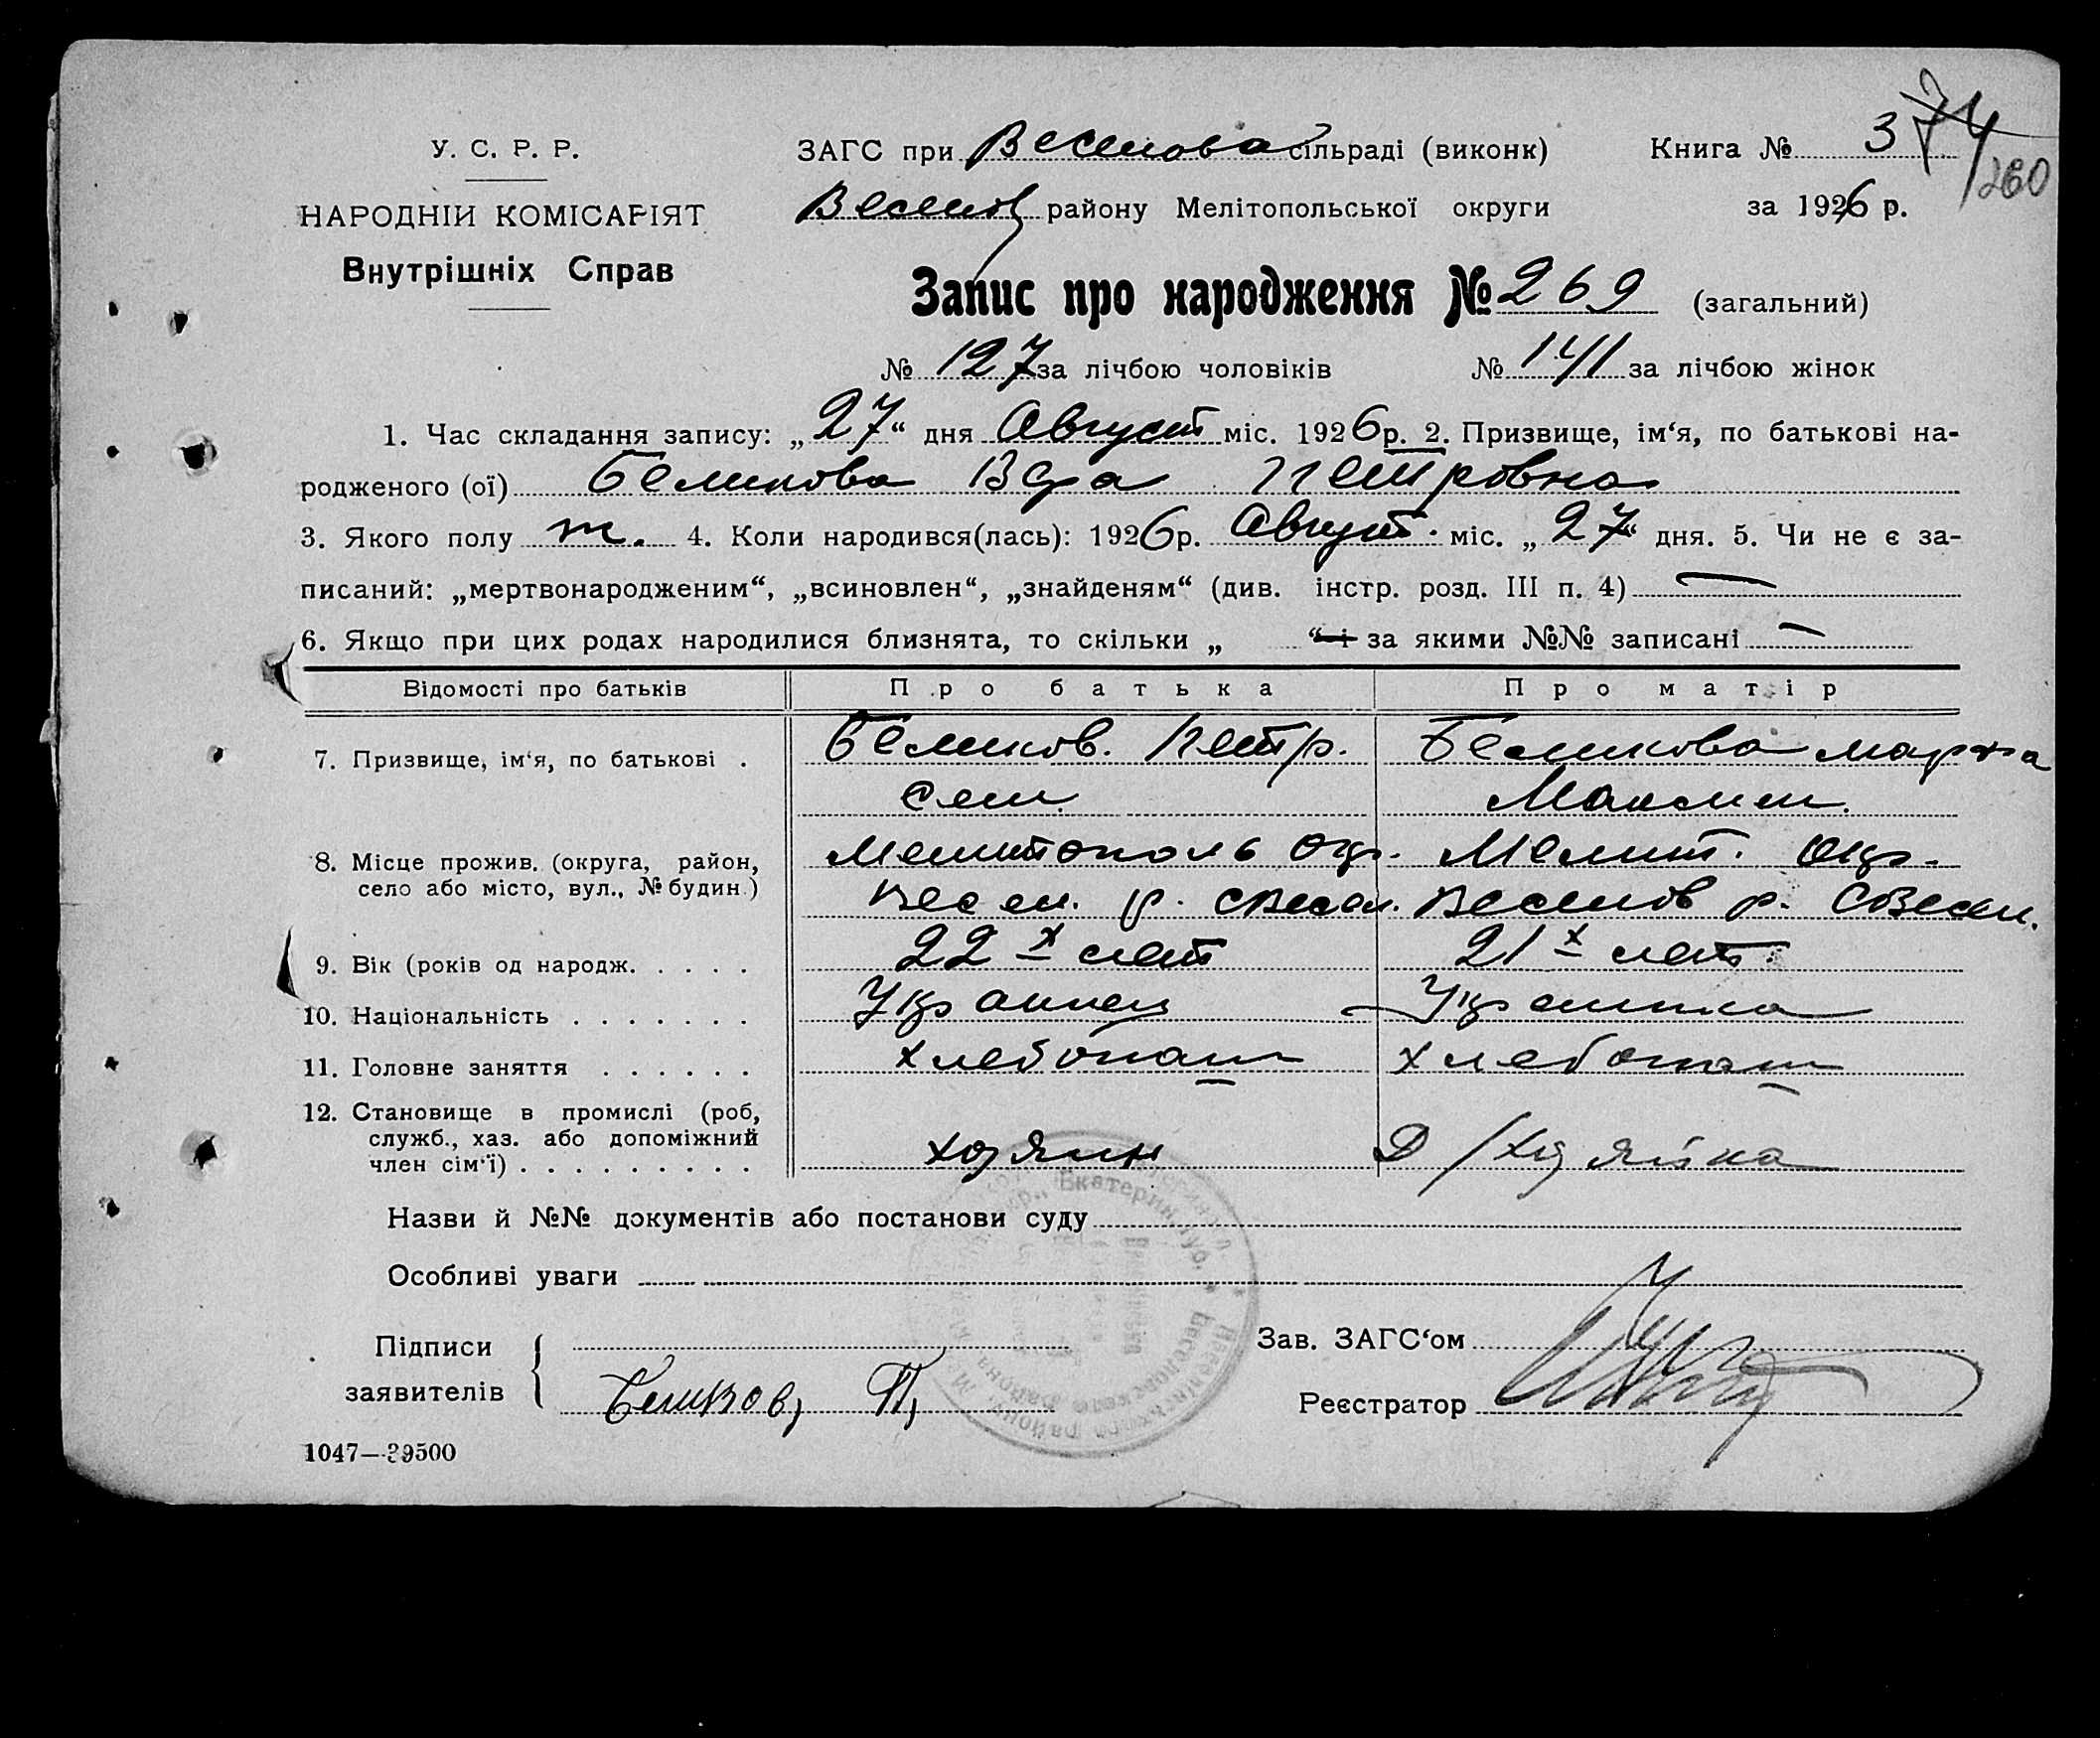 У. С. Р. Р.
НАРОДНІЙ КОМІСАРІЯТ
Внутрішніх Справ
ЗАГС при Веселова сільраді (виконк) Книга № 3 74
260
Веселов району Мелітопольської округи за 1926 р.
Запис про народження № 269 (загальний)
№ 127 за лічбою чоловіків № 141 за лічбою жінок
1. Час складання запису: „27“ дня Август міс. 1926 р. 2. Призвище, ім‘я, по батькові на-
родженого (ої) Беликова Вера Петровна
3. Якого полу ж. 4. Коли народився(лась): 1926 р. Август. міс. „27“ дня. 5. Чи не є за-
писаний: „мертвонародженим“, „всиновлен“, „знайденям“ (див. інстр. розд. III п. 4) —
6. Якщо при цих родах народилися близнята, то скільки „ “ і за якими №№ записані —
Відомості про батьків Про батька Про матір
7. Призвище, ім‘я, по батькові . Беликов. Петр. Беликова Марфа
Сем. Максим.
8. Місце прожив. (округа, район, Мелитополь окр. Мелит. окр.
село або місто, вул., № будин.) Весел. р. с Весел. Веселов р. С Весел.
9. Вік (років од народж. . . . . 22 х лет 21 х лет.
10. Національність . . . . . . . Украинец Украинка
11. Головне заняття . . . . . . хлебопаш хлебопаш
12. Становище в промислі (роб,
служб., хаз. або допоміжний
член сім‘ї) . . . . . . . . . хозяин Д/хозяйка
Назви й №№ документів або постанови суду
Особливі уваги
Підписи
заявителів Беликов, П,
Зав. ЗАГС‘ом
Реєстратор
1047—39500
Екатерин. губ.
Веселовского района